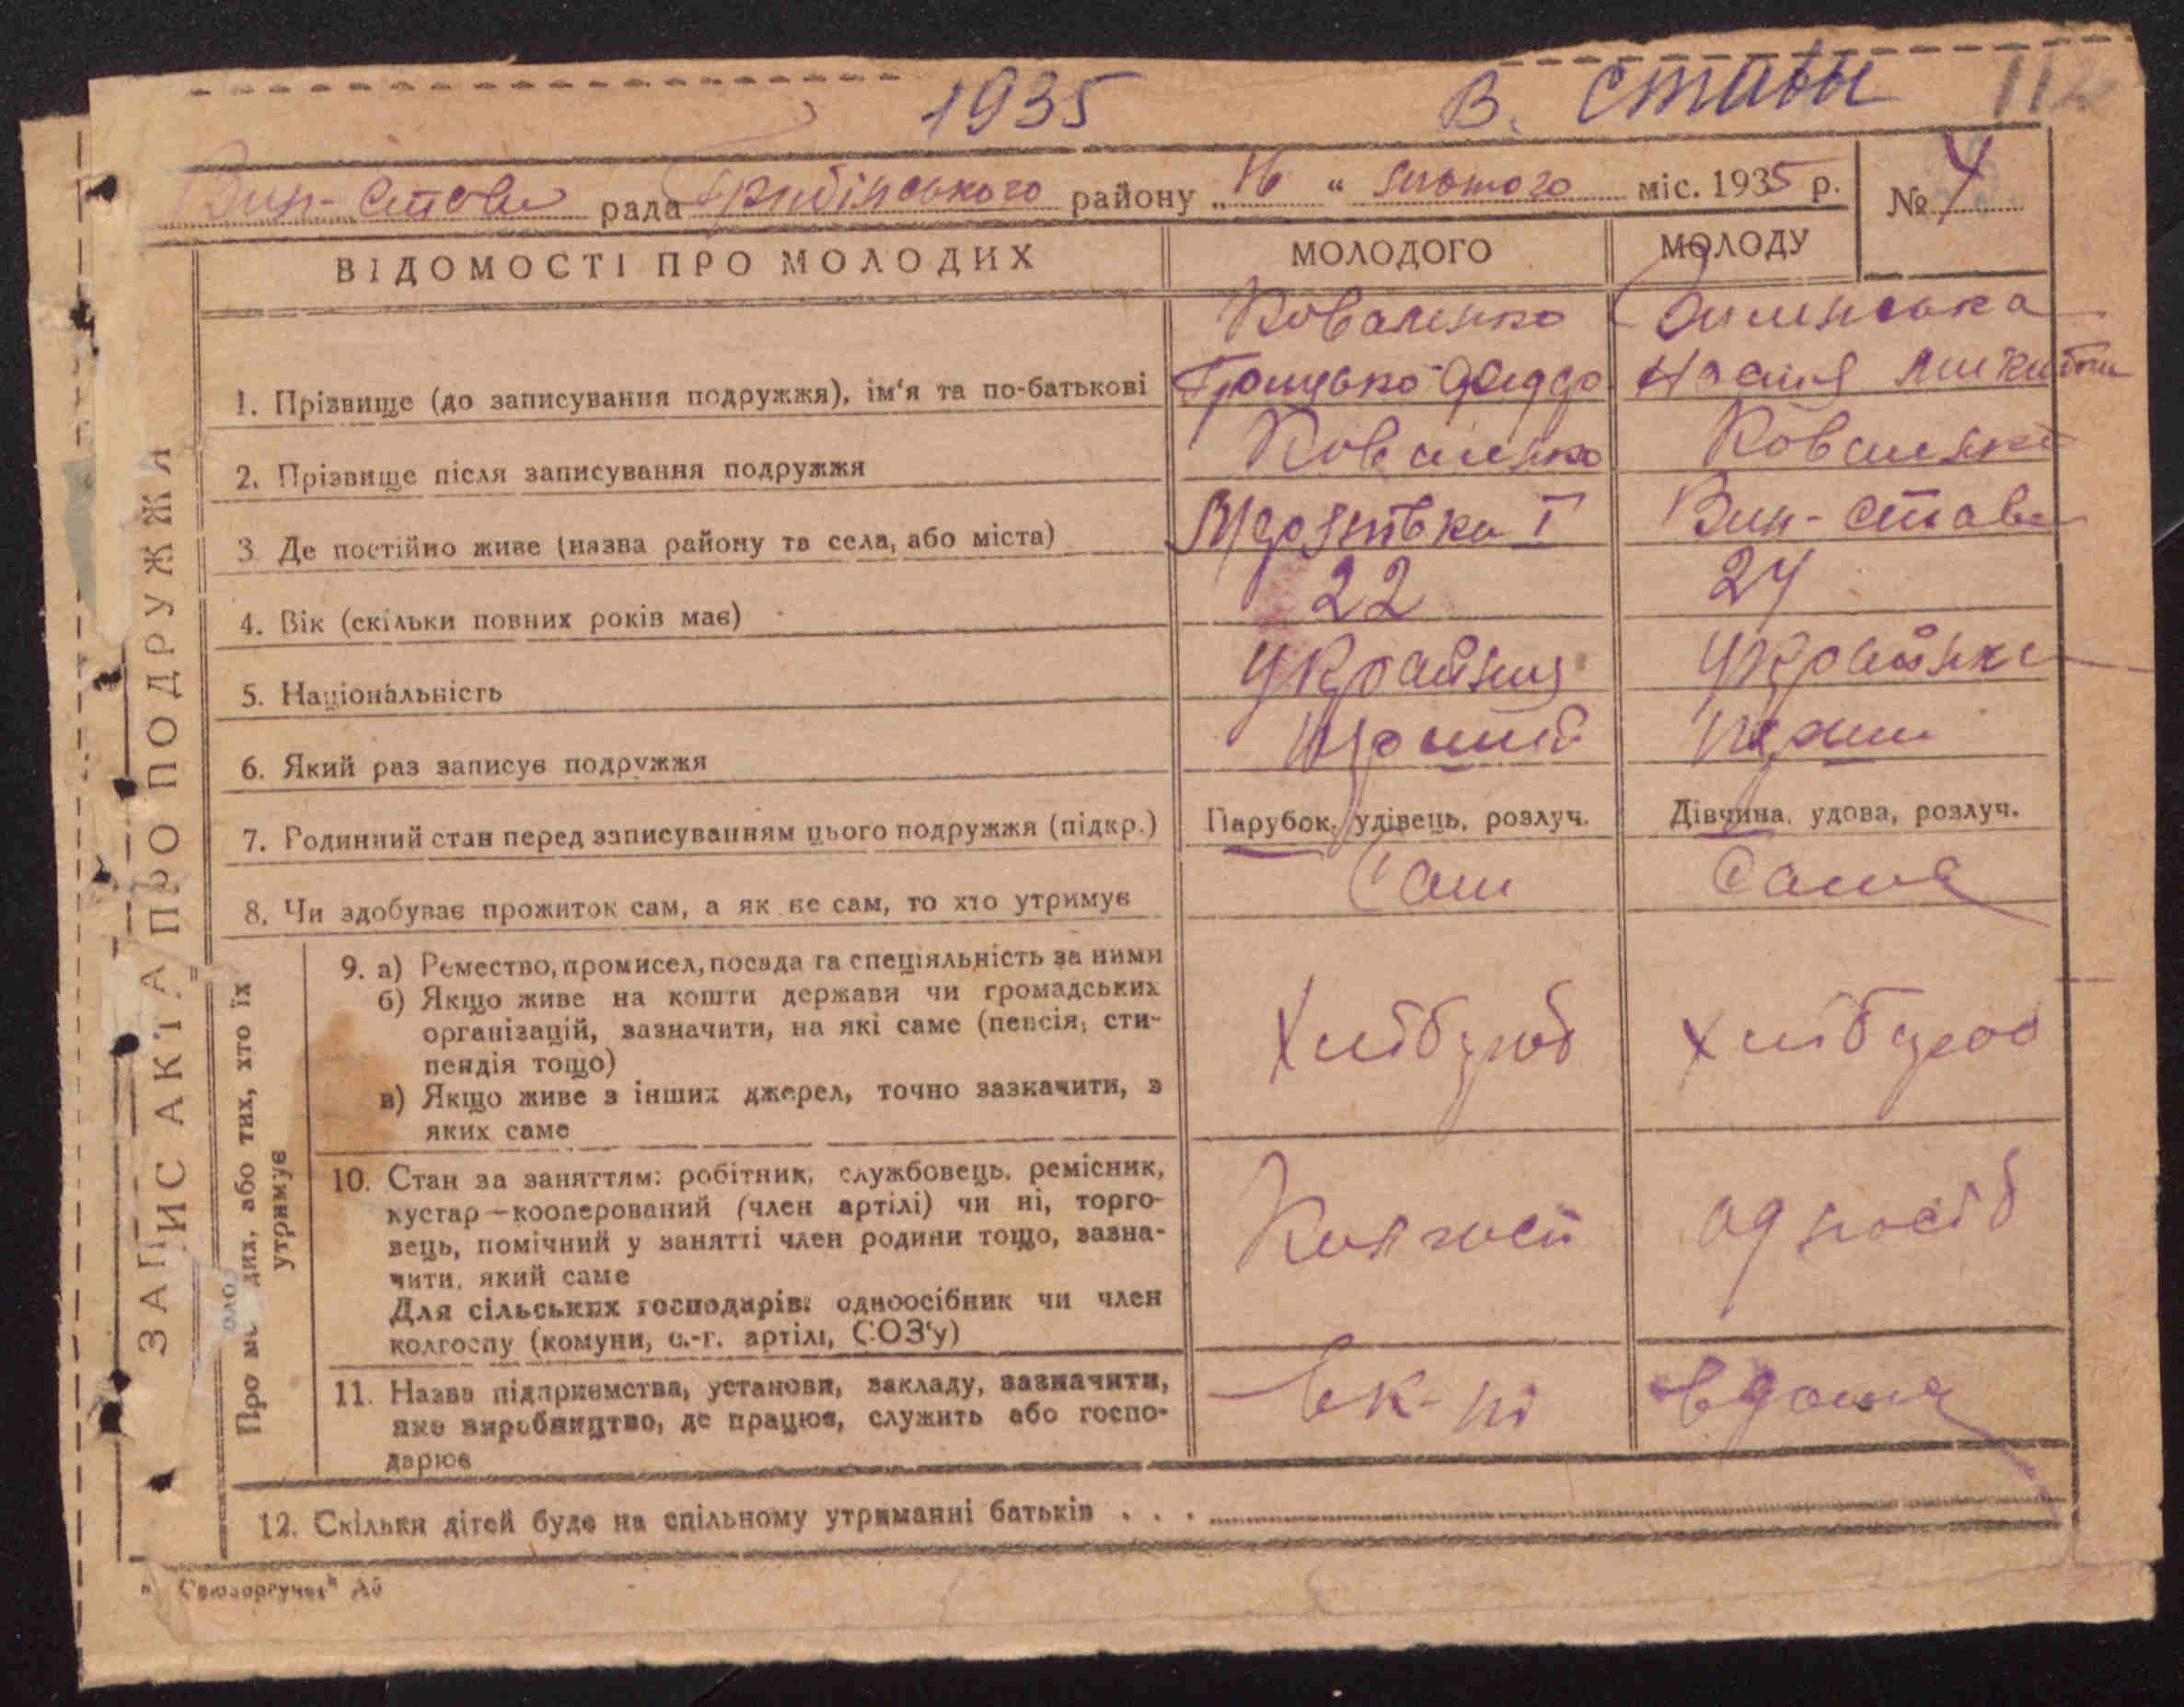 1935 В. Стави 112
Вин-Стави рада району „16“ лютого міс. 1935 р. № 4
ВІДОМОСТІ ПРО МОЛОДИХ МОЛОДОГО МОЛОДУ
Коваленко
1. Прізвище (до записування подружжя), ім'я та по-батькові Грицько
2. Прізвище після записування подружжя Коваленко Коваленко
3. Де постійно живе (назва району та села, або міста) I Вин-Стави
4. Вік (скільки повних років має) 22 24
5. Національність Українка
6. Який раз записує подружжя перший
7. Родинний стан перед записуванням цього подружжя (підкр.) Парубок, удівець, розлуч. Дівчина, удова, розлуч.
8. Чи здобуває прожиток сам, а як не сам, то хто утримує Сам Сама
9. а) Ремество, промисел, посада та спеціяльність за ними
б) Якщо живе на кошти держави чи громадських
організацій, зазначити, на які саме (пенсія, сти-
пендія тощо) Хлібороб Хлібороб
в) Якщо живе з інших джерел, точно зазначити, з
яких саме
10. Стан за заняттям: робітник, службовець, ремісник,
кустар—кооперований (член артілі) чи ні, торго-
вець, помічний у занятті член родини тощо, зазна-
чити, який саме Колгосп одноосіб
Для сільських господарів: одноосібник чи член
колгоспу (комуни, с.-г. артілі, СОЗ'у)
11. Назва підприємства, установи, закладу, зазначити,
яке виробництво, де працює, служить або госпо-
дарює вдома
12. Скільки дітей буде на спільному утриманні батьків . . .
ЗАПИС АКТА ПРО ПОДРУЖЖЯ
Про молодих, або тих, хто їх
утримує
„Союзоргучет“